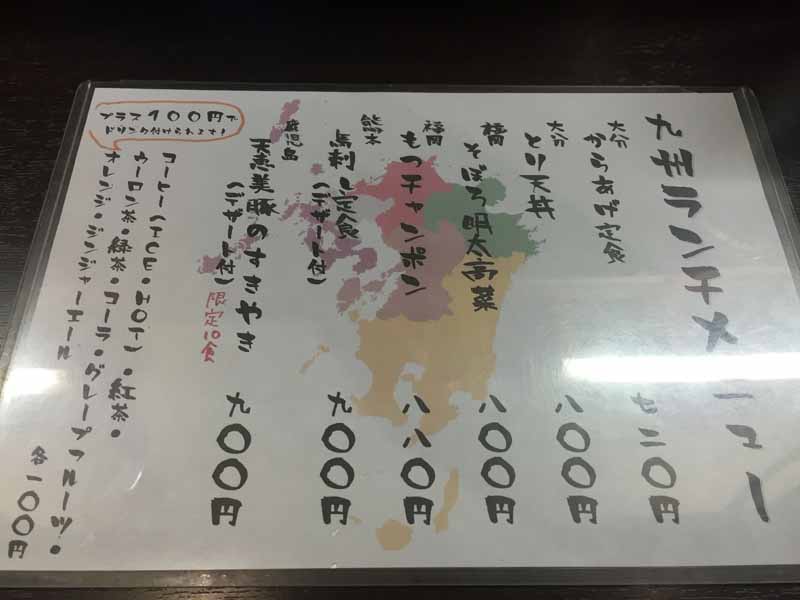 九州ランチメニュー
大分
からあげ定食 七二〇円
大分
とり天丼 八〇〇円
福岡
そぼろ明太高菜 八〇〇円
福岡
もつチャンポン 八八〇円
熊本
馬刺し定食
(デザート付) 九〇〇円
鹿児島
天恵美豚のすきやき
(デザート付) 九〇〇円
限定10食
プラス100円で
ドリンク付けられます!
コーヒー(ICE・HOT)・紅茶・
ウーロン茶・緑茶・コーラ・グレープフルーツ・
オレンジ・ジンジャーエール
各一〇〇円